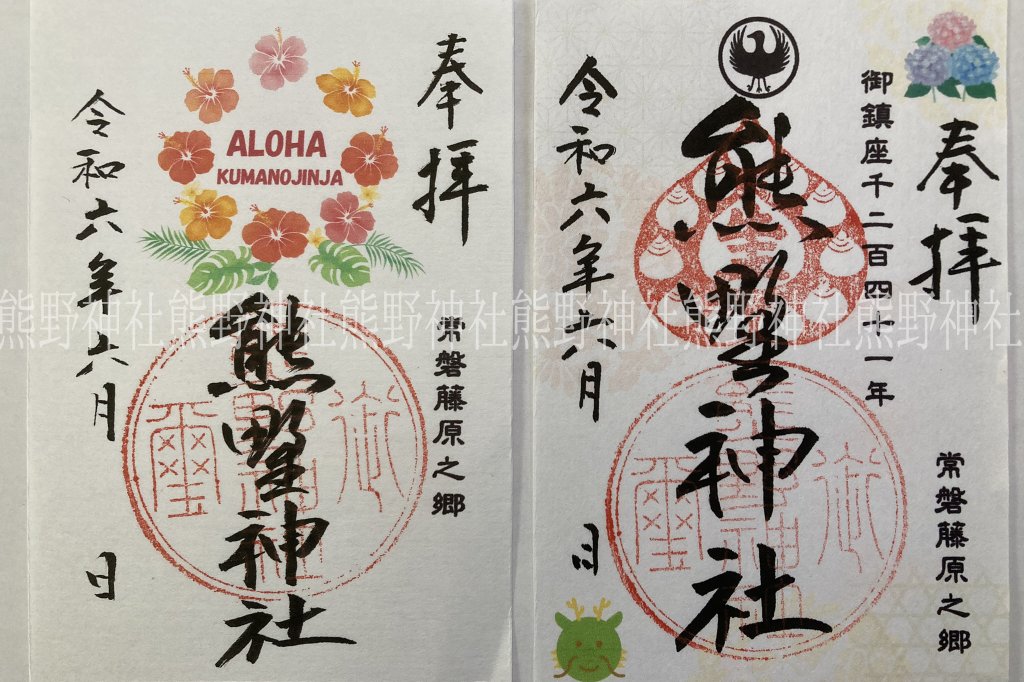 奉拝
ALOHA
KUMANOJINJA
常磐藤原之郷
熊野神社
令和六年六月
日
奉拝
御鎮座千二百四十一年
常磐藤原之郷
熊野神社
令和六年六月
日
熊野神社熊野神社熊野神社熊野神社熊野神社熊野神社